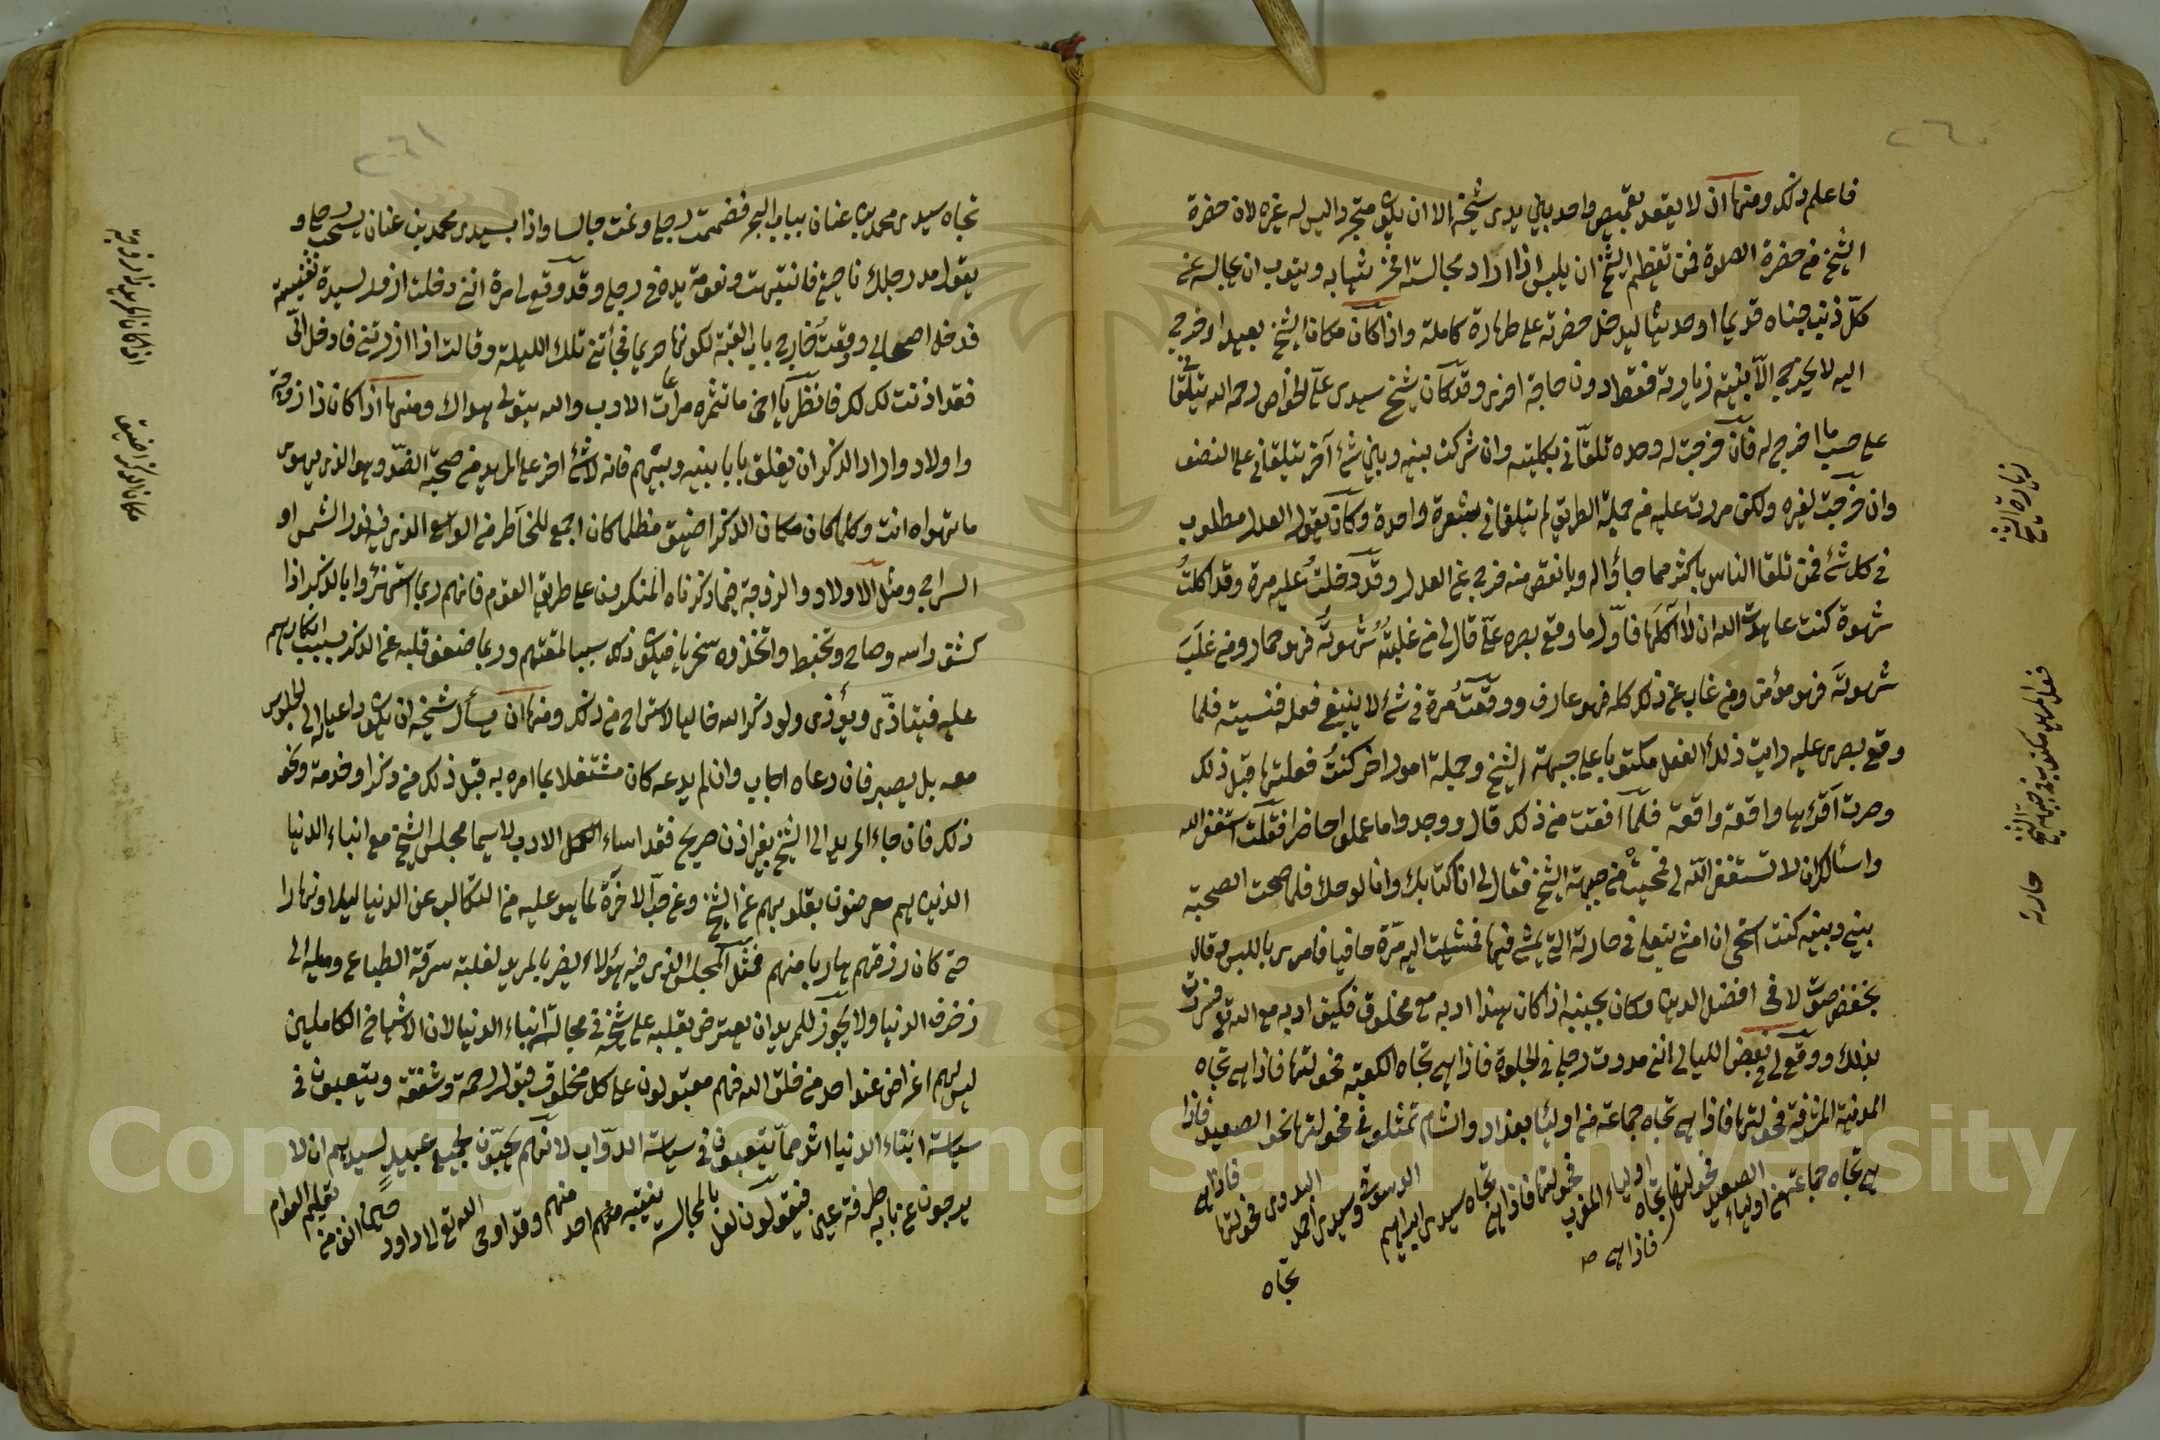 ٢٦٠
فاعلم ذلك ومنها ان لا يقعد بقميص واحد بين يدي شيخه الا ان يكون متجردا ليس له غيره لان حضرة
الشيخ من حضرة الصلوة فمن تعظيم الشيخ ان يلبس اذا اراد مجالسته افخر ثيابه ويتوب ان يجالسه عن
كل ذنب جناه قديما او حديثا ليدخل حضرته على طهارة كاملة واذا كان مكان الشيخ بعيدا وخرج
اليه لا يخرج الا بنية زيارته فقط دون حاجة اخرى وقد كان شيخي سيدي علي الخواص رحمه الله يتلقاني
على حسب ما اخرج له فان خرجت له وحده تلقاني بكليته وان شركت بينه وبين شئ آخر يتلقاني على النصف
وان خرجت لغيره ولكن مررت عليه من جملة الطريق لم يتلقاني بشعرة واحدة وكان يقول العدل مطلوب
في كل شئ فمن تلقا الناس باكثر مما جاؤا له وبانقص منه خرج عن العدل وقد دخلت عليه مرة وقد اكلت
شهوة كنت عاهدت الله ان لا آكلها فاول ما وقع بصره علي قال لي من غلبته شهوته فهو حمار ومن غلب
شهوته فهو مؤمن ومن غاب عن ذلك كله فهو عارف ووقعت مرة في شئ لا ينبغي فعله فنسيته فلما
وقع بصري عليه رايت ذلك الفعل مكتوبا على جبهة الشيخ وجملة امور اخر كنت فعلتها قبل ذلك
وصرت اقرؤها واقعة واقعة فلما افقت من ذلك قال ووجدوا ما عملوا حاضرا فقلت استغفر الله
واسألك ان لا تستغفر الله لي فمحيت من جبهة الشيخ فقال لي انا كتابك وانا لوحك فلما صحت الصحبة
بيني وبينه كنت استحي ان امشي بنعلي في حارته التي يمشي فيها فمشيت اليه مرة حافيا فامرني باللبس وقال
بخفض صوت لاخي افضل الدين وكان بجنبه اذا كان هذا ادبه مع مخلوق فكيف ادبه مع الله تع ففرحت
بذلك ووقع لي في بعض الليالي انني مددت رجلي في الخلوة فاذا هي تجاه الكعبة فحولتها فاذا هي تجاه
المدينة المشرفة فحولتها فاذا هي تجاه جماعة من اولياء بغداد والشام تمثلوا لي فحولتها نحو الصعيد فاذا
هي تجاه جماعة من اولياء الصعيد فحولتها فاذا هي تجاه اولياء المغرب فحولتها فاذا هي تجاه سيدي ابراهيم الدسوقي وسيدي احمد البدوي فحولتها فاذا هي
تجاه
زيارة الشيخ
فعل المريد مكتوب في جبهة الشيخ
حارته
٢٦١
تجاه سيدي محمد بن عنان بباب البحر فضممت رجلي ونمت جالسا واذا بسيدي محمد بن عنان يسحب رجلي و
يقول مد رجلك ناحيتي فانتبهت ونعومة يده في رجلي وقد وقع لي مرة انني دخلت ازور السيدة نفيسة
فدخل اصحابي ووقفت خارج باب القبة لكونها حريما فجأتني تلك الليلة وقالت اذا ازرتني فادخل الي
فقد اذنت لك فانظر يا اخي ما تثمره مراعات الادب والله يتولى هداك ومنها اذا كان ذا زوجة
واولاد واراد الذكر ان يغلق بابا بينه وبينهم فانه لا شئ اضر على المريد من صحبة الضد وهو الذي يهوى
ما تهواه انت وكلما كان مكان الذكر اضيق مظلما كان اجمع للخاطر من الواسع الذي فيه نور الشمس او
السراج ومثل الاولاد والزوجة فيما ذكرناه المنكرون على طريق القوم فانهم ربما استهزؤا بالذاكر اذا
كشف راسه وصاح وتخبط واتخذوه سخريا فيكون ذلك سببا لمقتهم وربما ضعف قلبه عن الذكر بسبب انكارهم
عليه فيتاذى ويؤذي ولو ذكر الله خاليا لاستراح من ذلك ومنها ان لا يسأل شيخه ان يكون داعيا له الى الجلوس
معه بل يصبر فان دعاه اجاب وان لم يدعه كان مشتغلا بما امره به قبل ذلك من ذكر او خدمة ونحو
ذلك فان جاء المريد الى الشيخ بغير اذن صريح فقد اساء كل الادب لا سيما مجلس الشيخ مع ابناء الدنيا
الذين هم معرضون بقلوبهم عن الشيخ وعن حب الاخرة لما هو عليه من التكالب عن الدنيا ليلا ونهارا
حتى كان رزقهم هاربا منهم فمثل المجلس الذي فيه هؤلاء يضر بالمريد لغلبة سرقة الطباع وميله الى
زخرف الدنيا ولا يجوز للمريد ان يعترض بقلبه على شيخه في مجالسته ابناء الدنيا لان الاشياخ الكاملين
ليس لهم اغراض عند احد من خلق الله فهم مقبولون على كل مخلوق بقول رحمة وشفقة ويتعبون في
سياسة ابناء الدنيا اشد مما يتعبون في سياسة الدواب لانهم يحبون لجميع عبيد لسيدهم ان لا
يرجون عن بابه طرفة عين فيقولون لعل بالمجالسة يفيته منهم احد منهم وقد اوحى الله تع الى داود حيثما انف من تعليم العوام
اذا كان المريد ذا زوجة
مكان الذكر اضيق